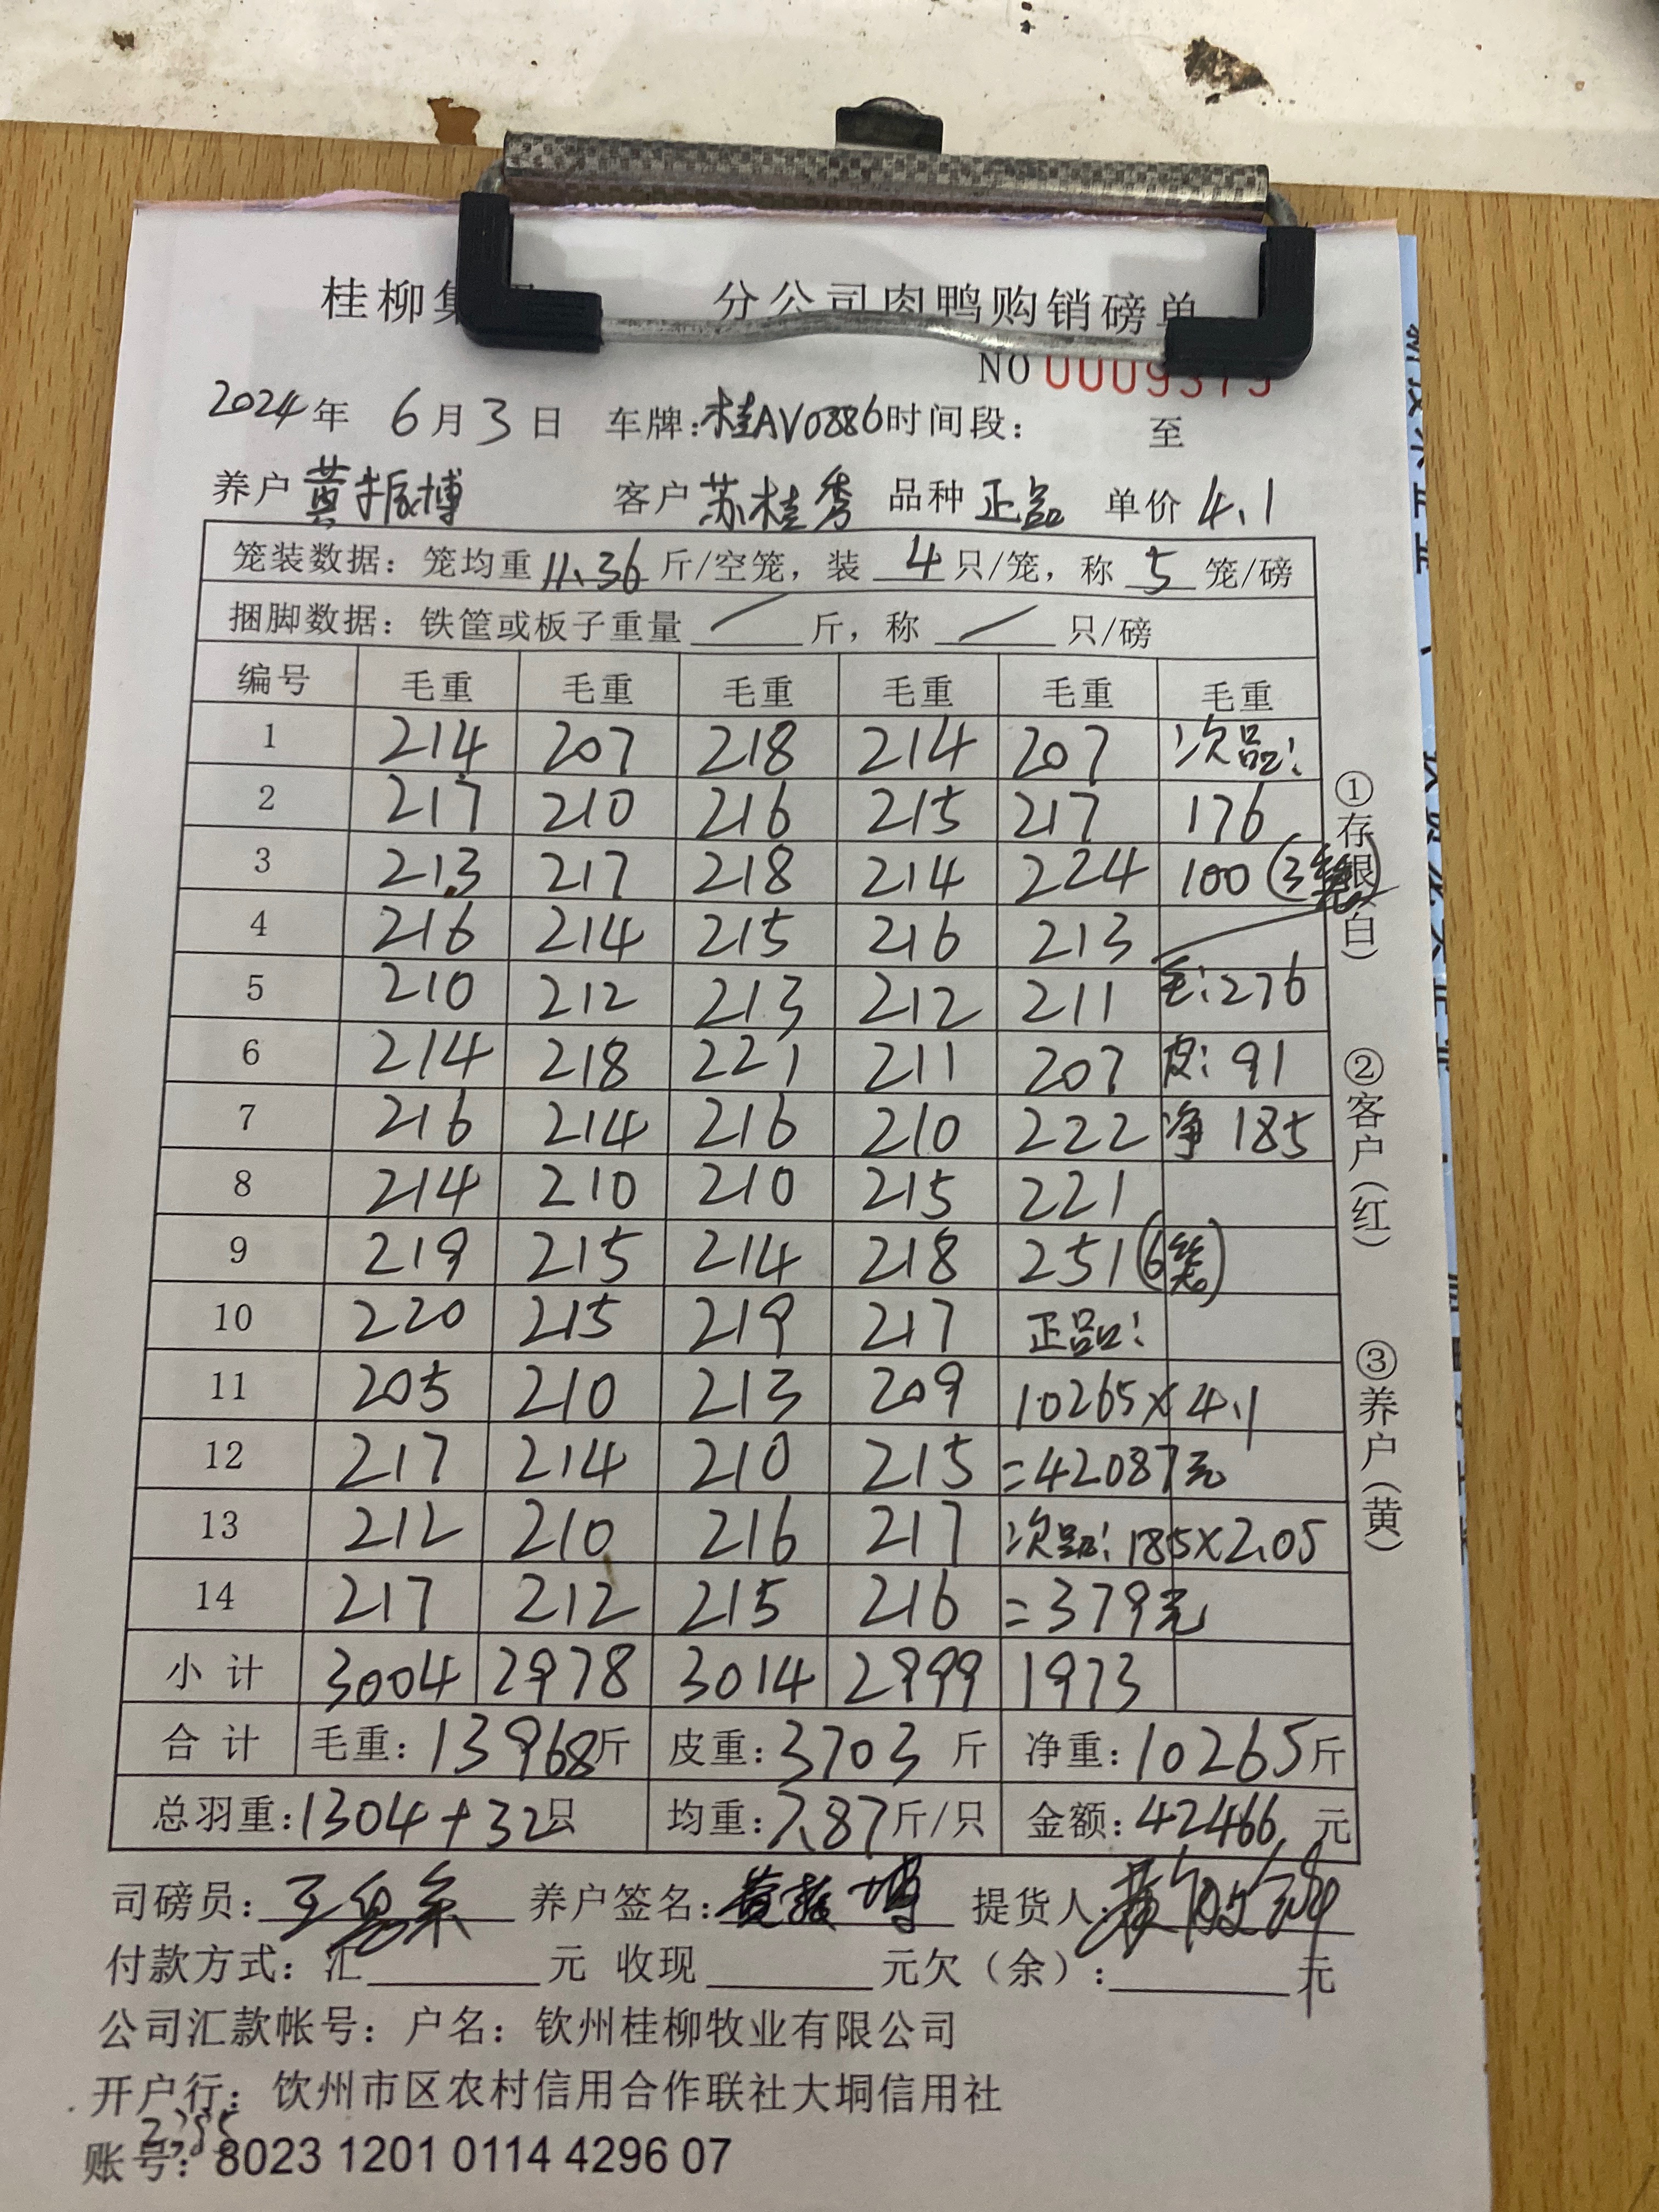 桂柳集 分公司肉鸭购销磅单
NO 0009375
2024年 6月3日 车牌:桂AV0886时间段: 至
养户 黄振博 客户 苏桂秀 品种 正品 单价 4.1
笼装数据: 笼均重 11.36 斤/空笼, 装 4 只/笼, 称 5 笼/磅
捆脚数据: 铁筐或板子重量 / 斤, 称 / 只/磅
编号 毛重 毛重 毛重 毛重 毛重 毛重
1 214 207 218 214 207 次品:
2 217 210 216 215 217 176
3 213 217 218 214 224 100 (3笼)
4 216 214 215 216 213
5 210 212 213 212 211 毛:276
6 214 218 221 211 207 皮:91
7 216 214 216 210 222 净 185
8 214 210 210 215 221
9 219 215 214 218 251 (6笼)
10 220 215 219 217 正品:
11 205 210 213 209 10265×4.1
12 217 214 210 215 =42087元
13 212 210 216 217 次品:185×2.05
14 217 212 215 216 =379元
小计 3004 2978 3014 2999 1973
合计 毛重:13968斤 皮重:3703 斤 净重:10265斤
总羽重:1304+32只 均重:7.87斤/只 金额:42466 元
司磅员: 养户签名:黄振博 提货人:
付款方式: 汇 元 收现 元欠(余): 元
公司汇款帐号: 户名: 钦州桂柳牧业有限公司
开户行: 饮州市区农村信用合作联社大垌信用社
账号: 8023 1201 0114 4296 07
①存根(白)
②客户(红)
③养户(黄)